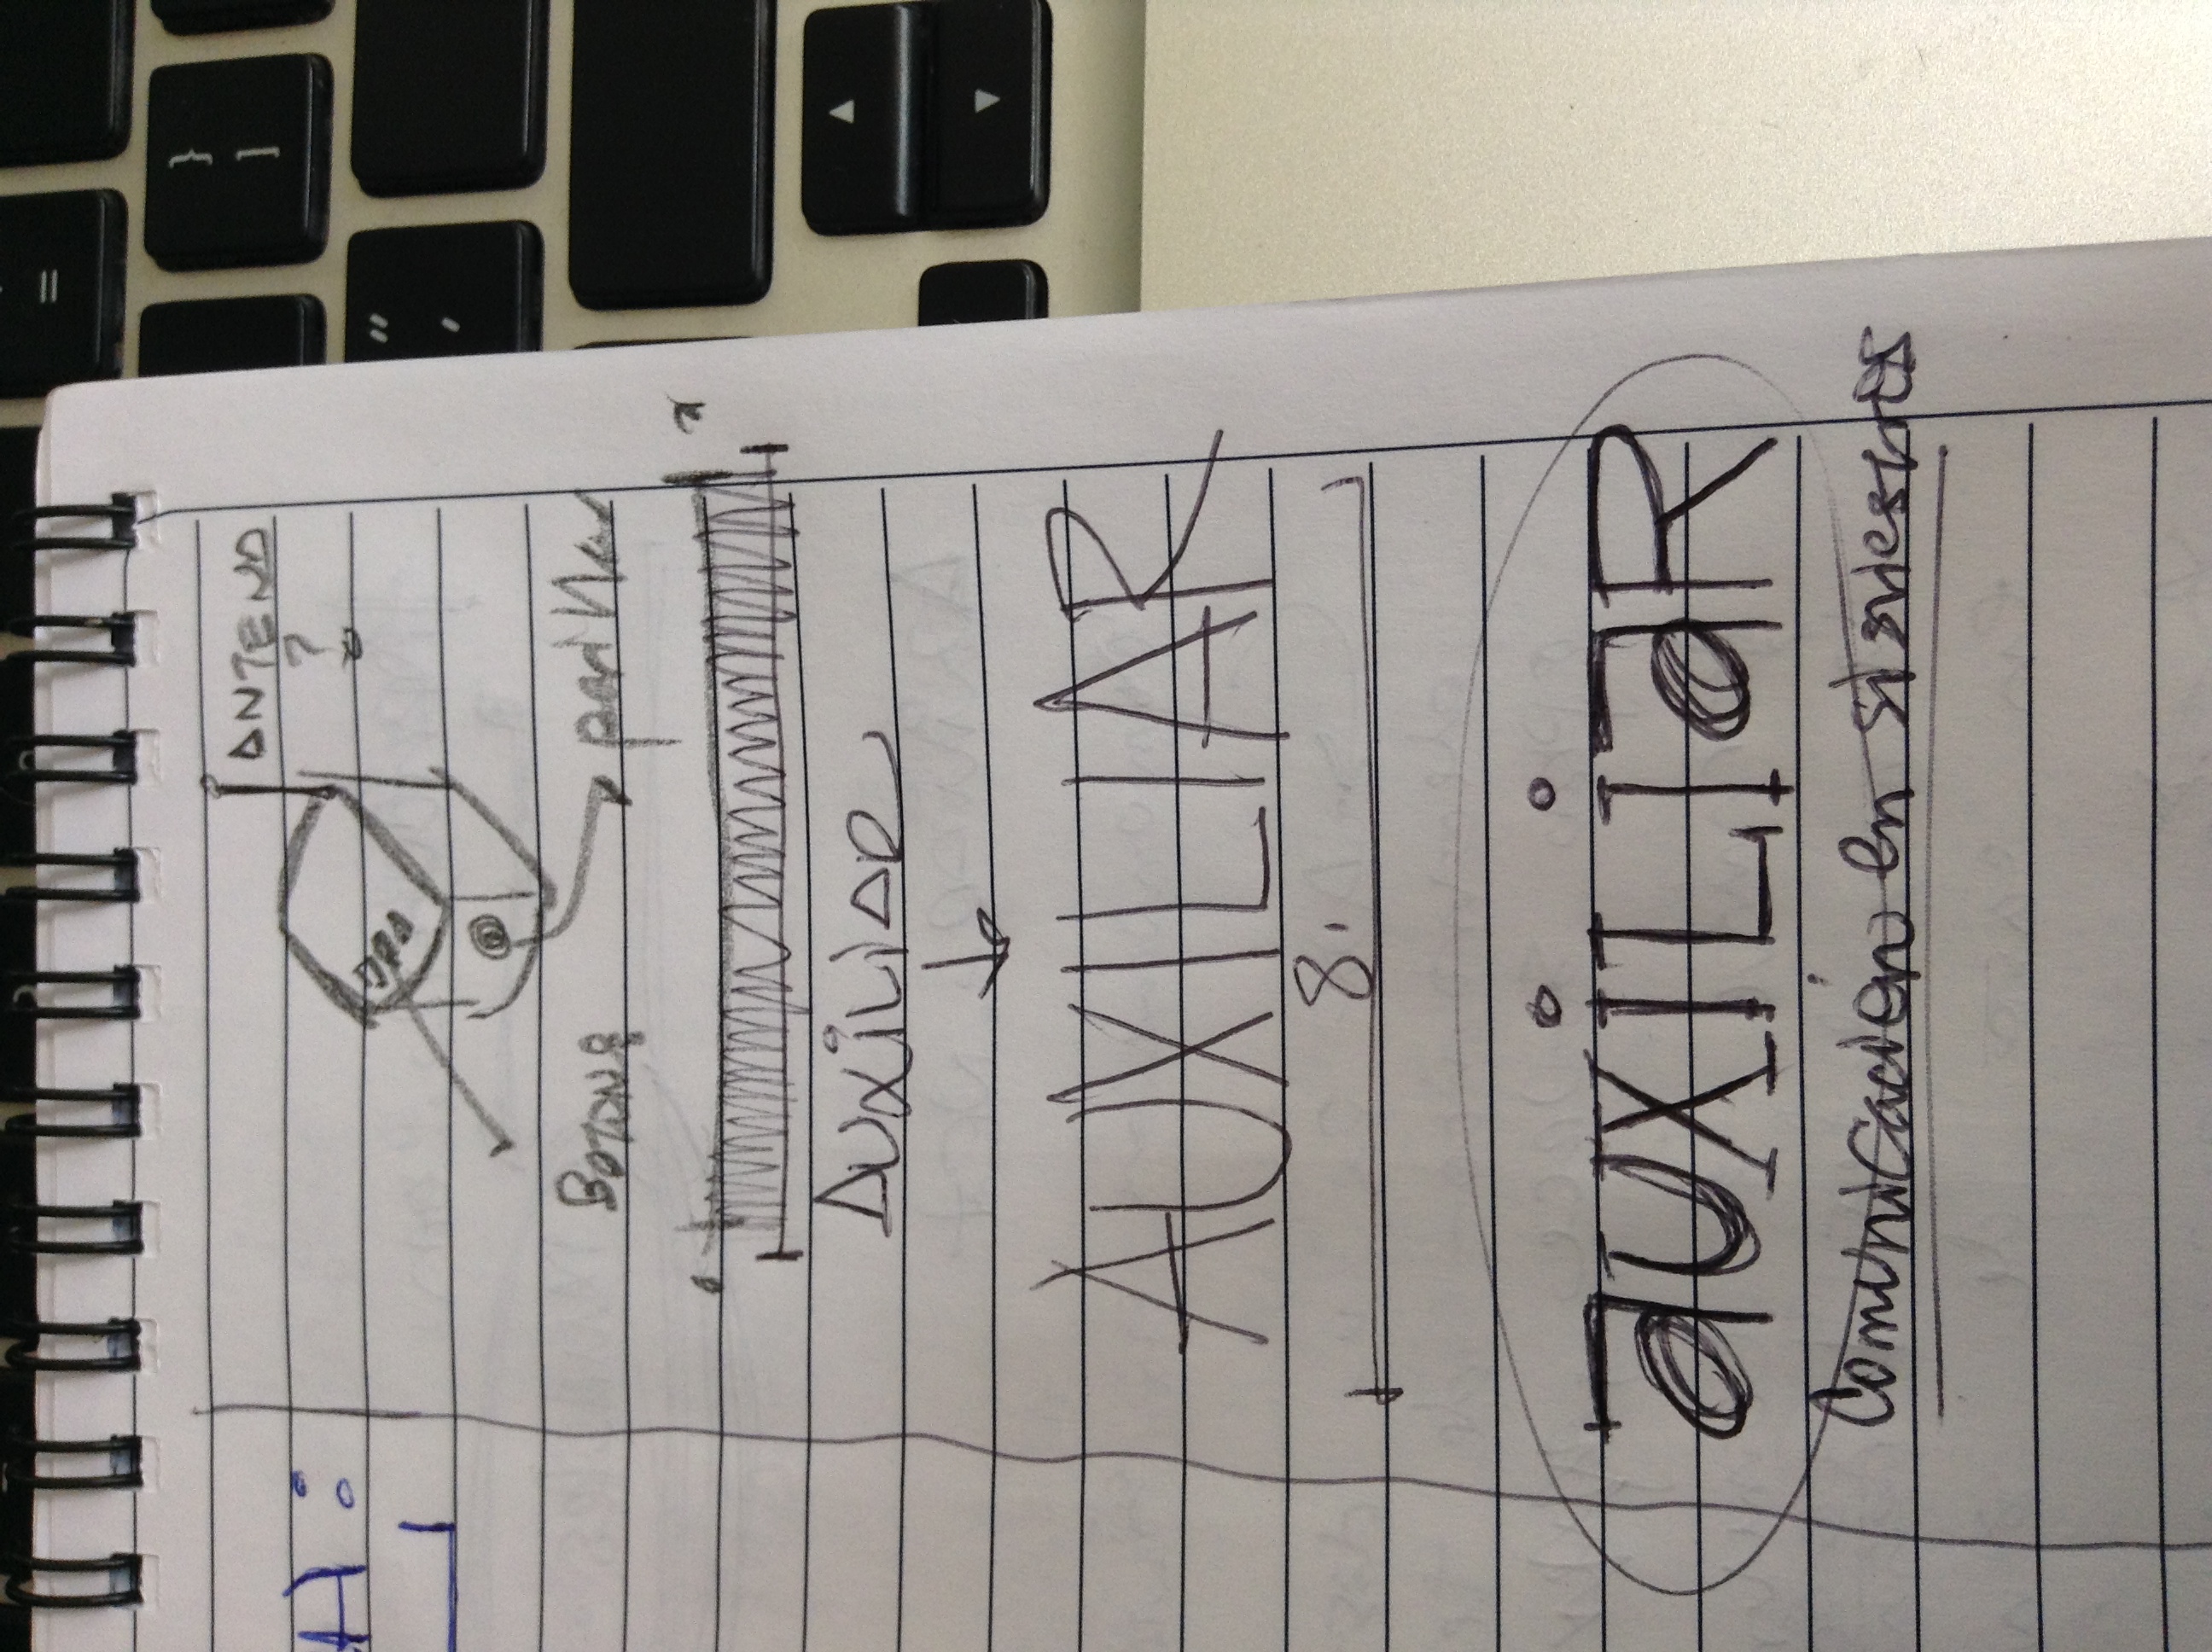 ANTENA
?
BOTONS
perilla
AUXiLiAR
AUXILIAR
8.
auxiLiaR
Comunicación en siniestros